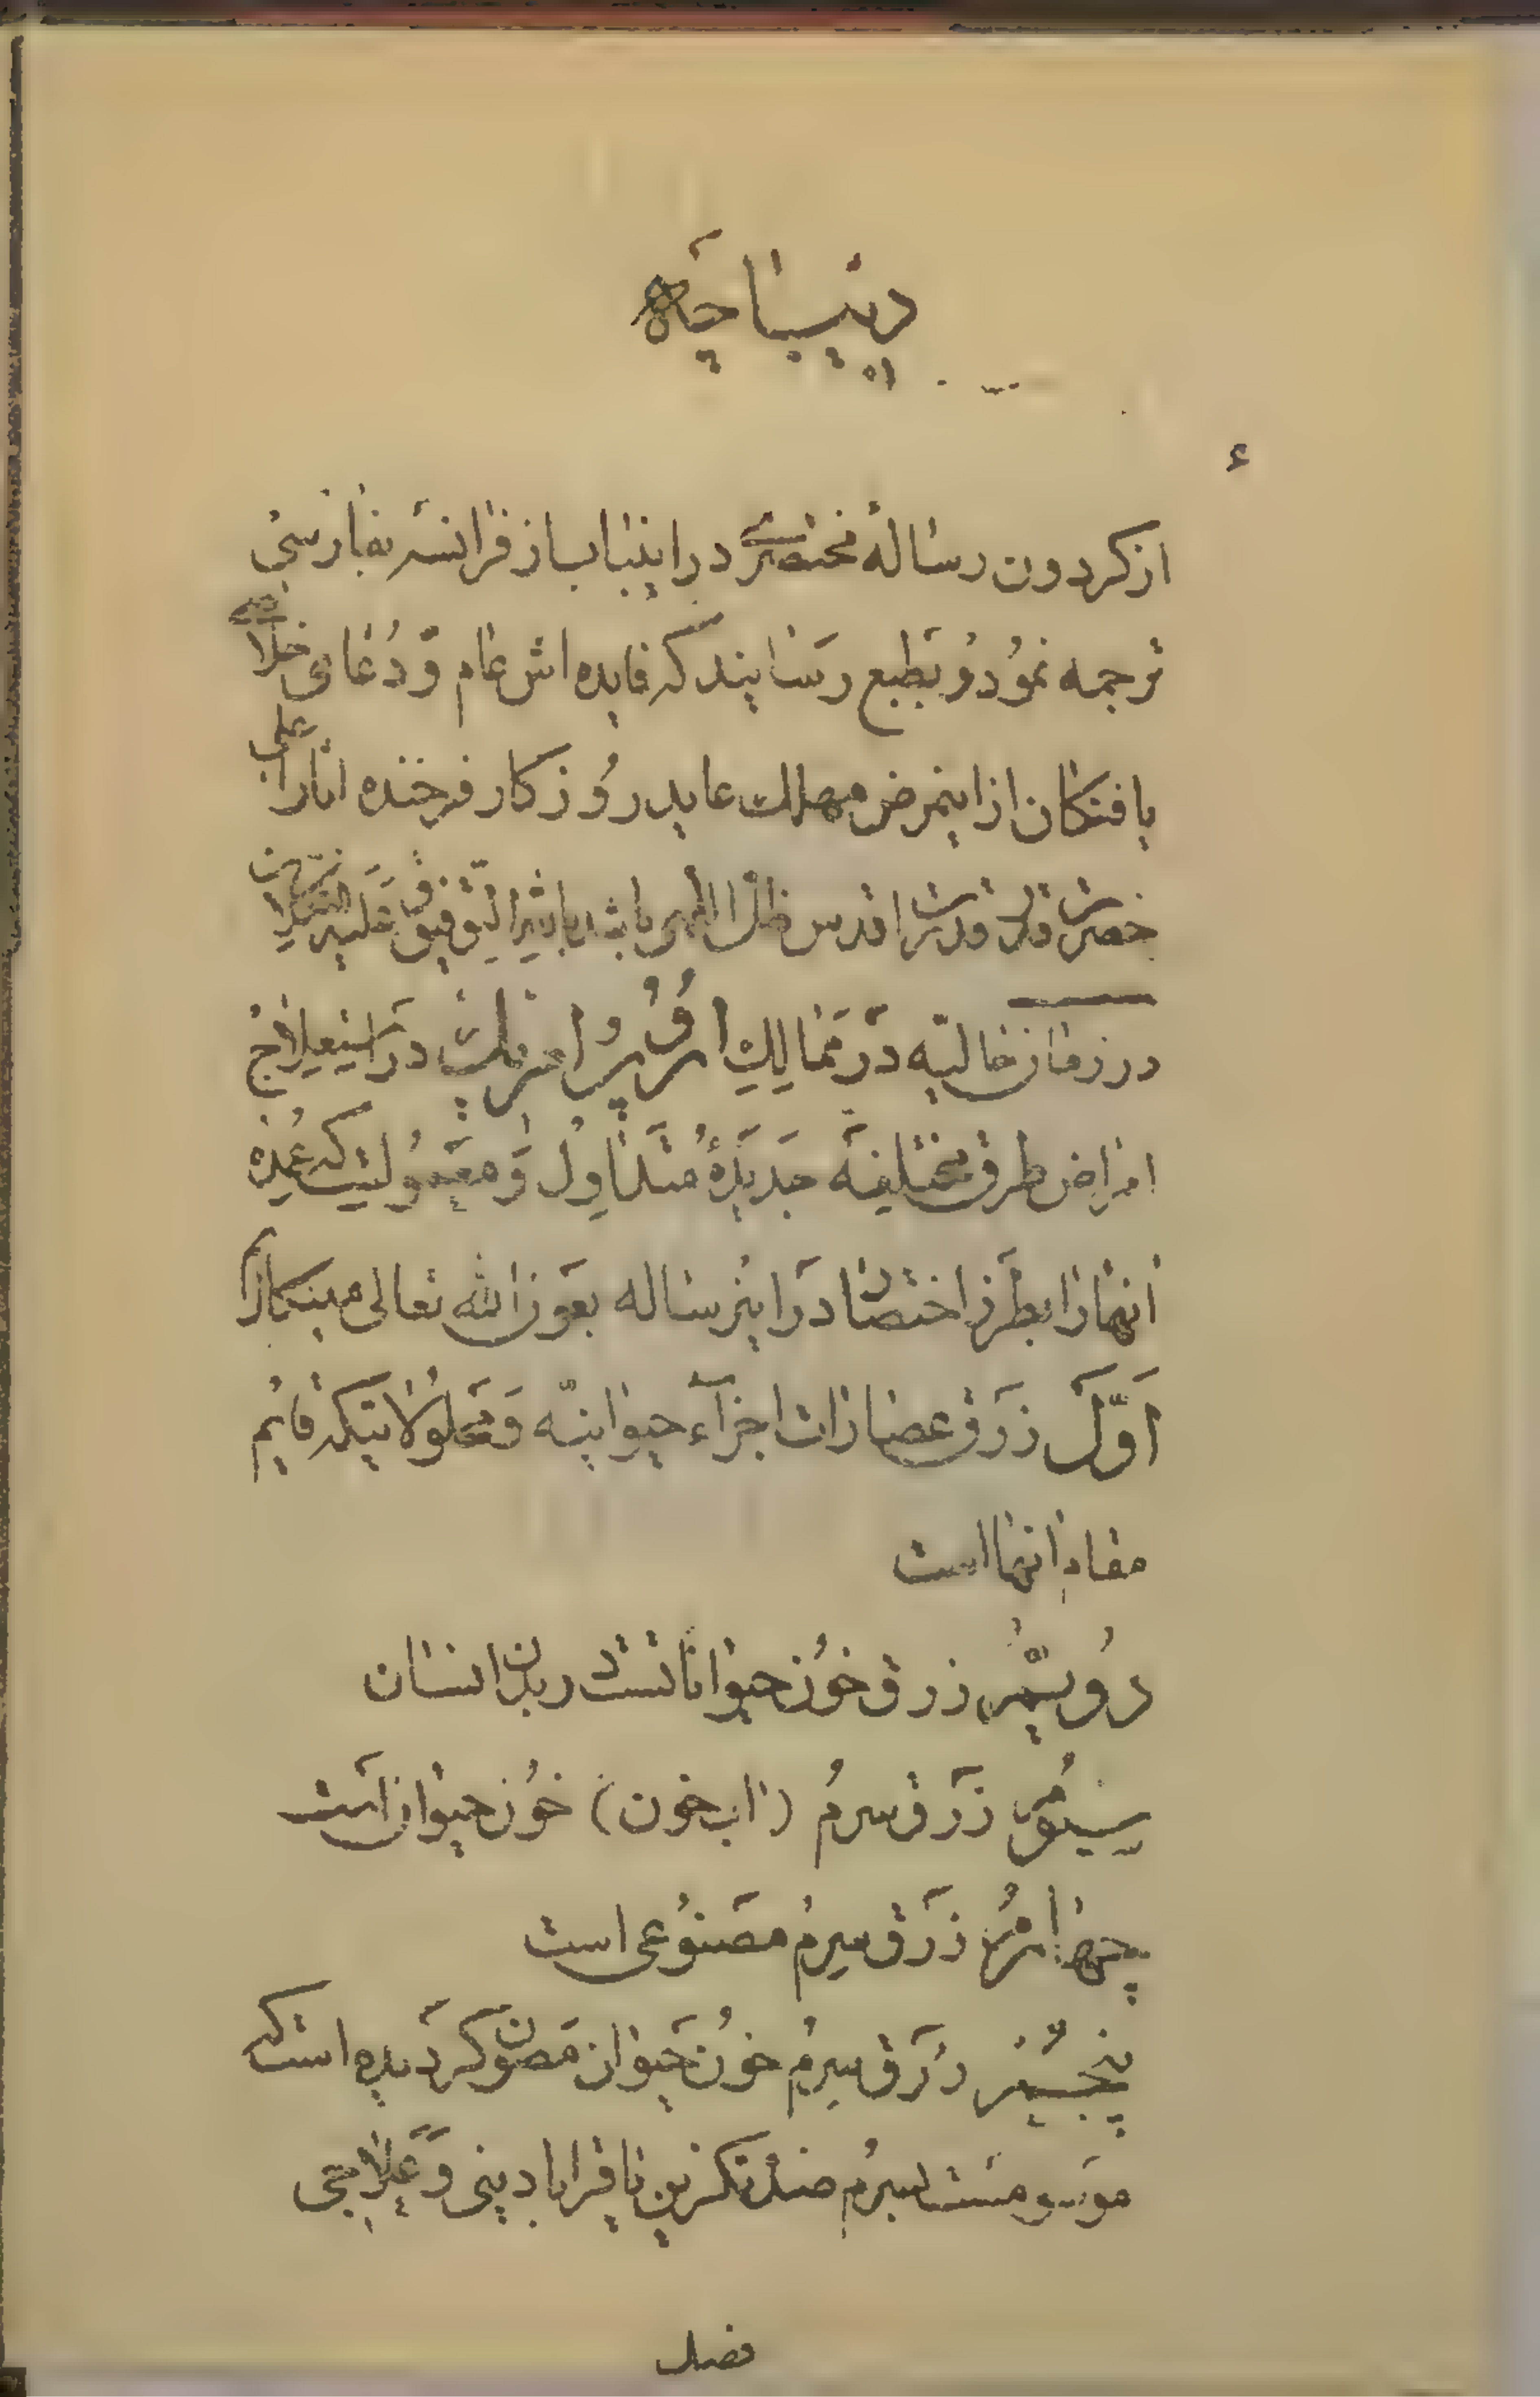 دیباچه
۴
از کردون رسالهٔ مختصری در اینباب از فرانسه بفارسی
ترجمه نمود و بطبع رسانید که فایده اش عام و دعای خلاصی
یافتکان از اینمرض مهلک عاید روزکار فرخنده اثار اعلی
حضرت قدر قدرت اقدس ظل اللهی باشد بالله التوفیق و علیه التکلان
در زمان حالیه در ممالک ارُپ و امریک در استعلاج
امراض طرق مختلفه جدیدهٔ متداول و معمولست که عمده
انهارا بطرز اختصار در اینرساله بعون الله تعالی مینکارم
اوّل زرق عصارات اجزآء حیوانیّه و محلولاتیکه قایم
مقام انها است
دویّم زرق خون حیواناتست در بدن انسان
سیّم زرق سرم (اب خون) خون حیوان است
چهارم زرق سرم مصنوعی است
پنجم زرق سرم خون حیوان مصون کردیده است که
موسومست بسرم ضد زهر یا قرابادینی و علاجی
فصل